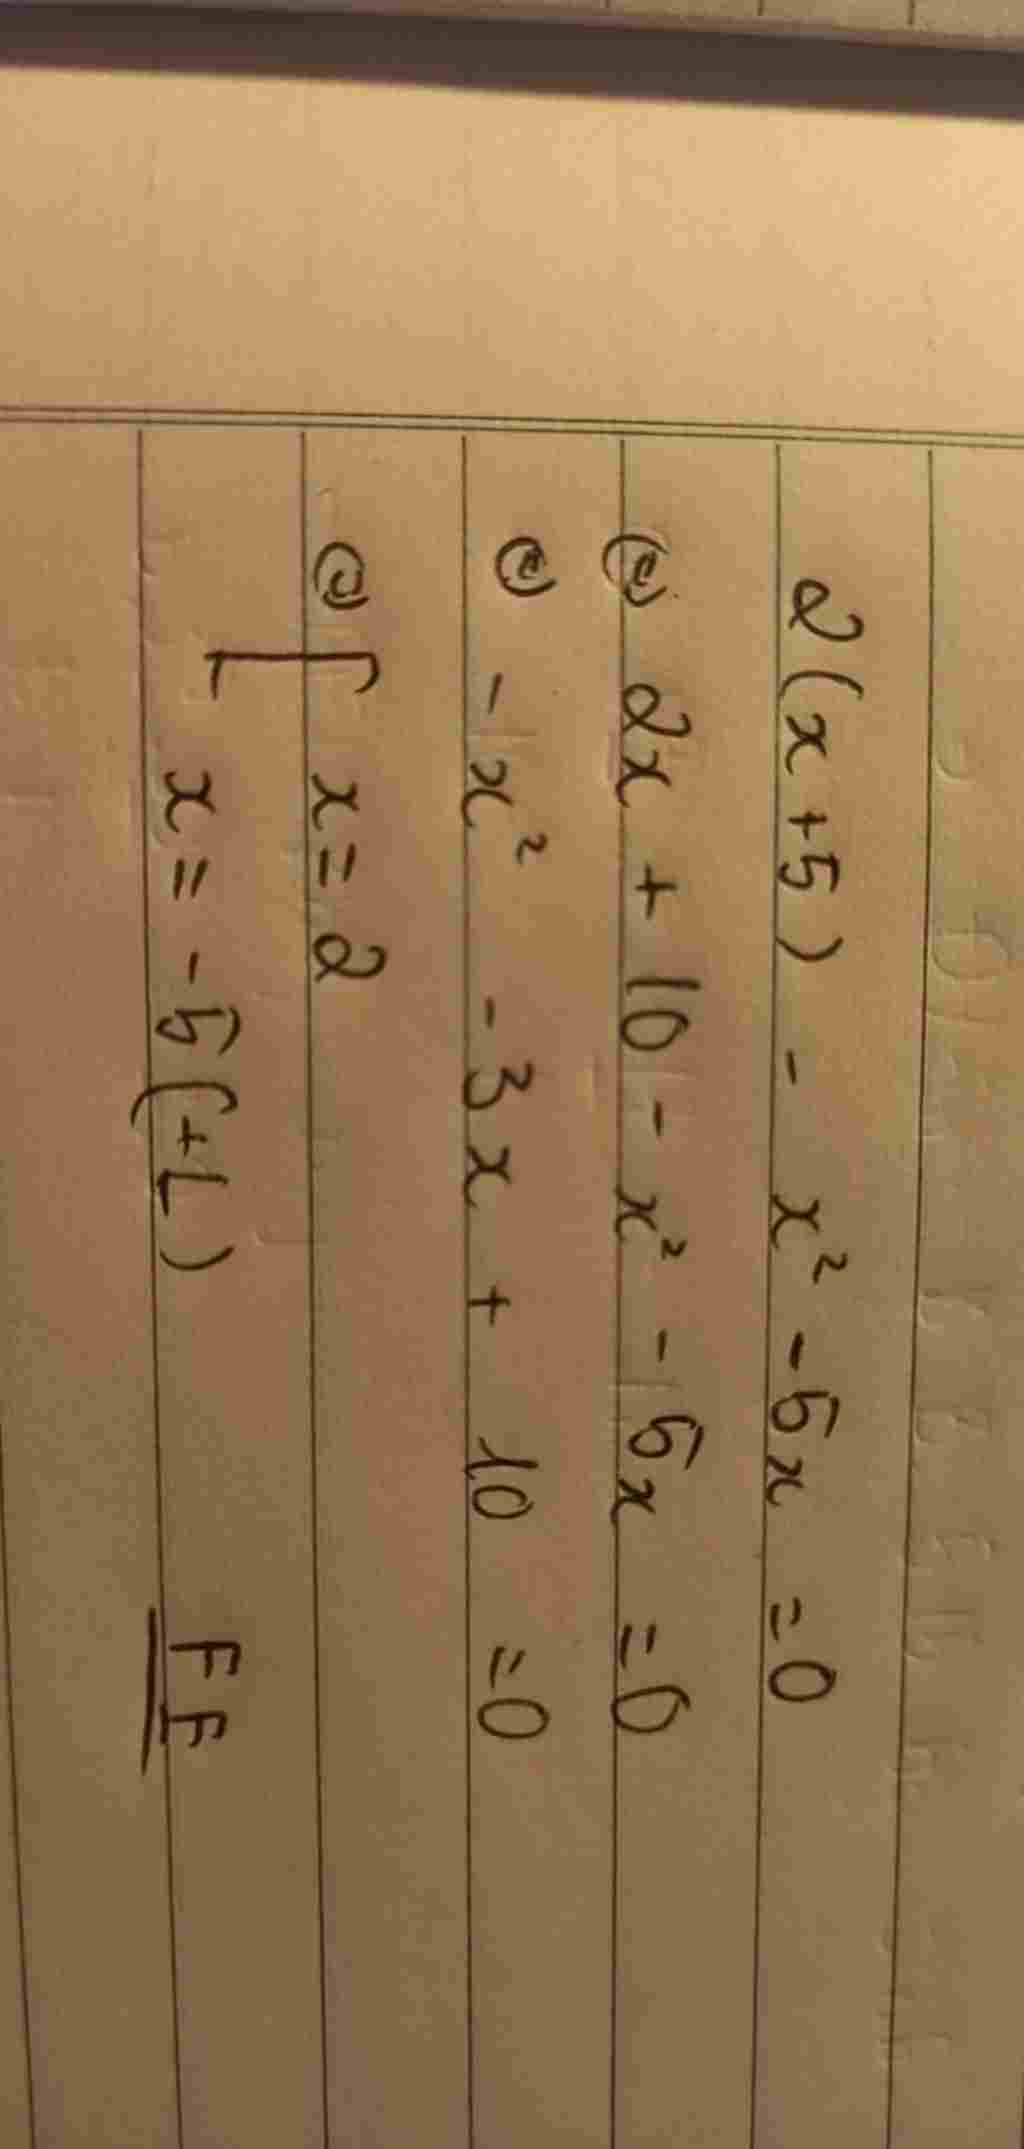 2(x+5) - x² - 5x = 0
⇔ 2x + 10 - x² - 5x = 0
⇔ - x² - 3x + 10 = 0
⇔ [ x = 2
x = -5 (+L)
FF